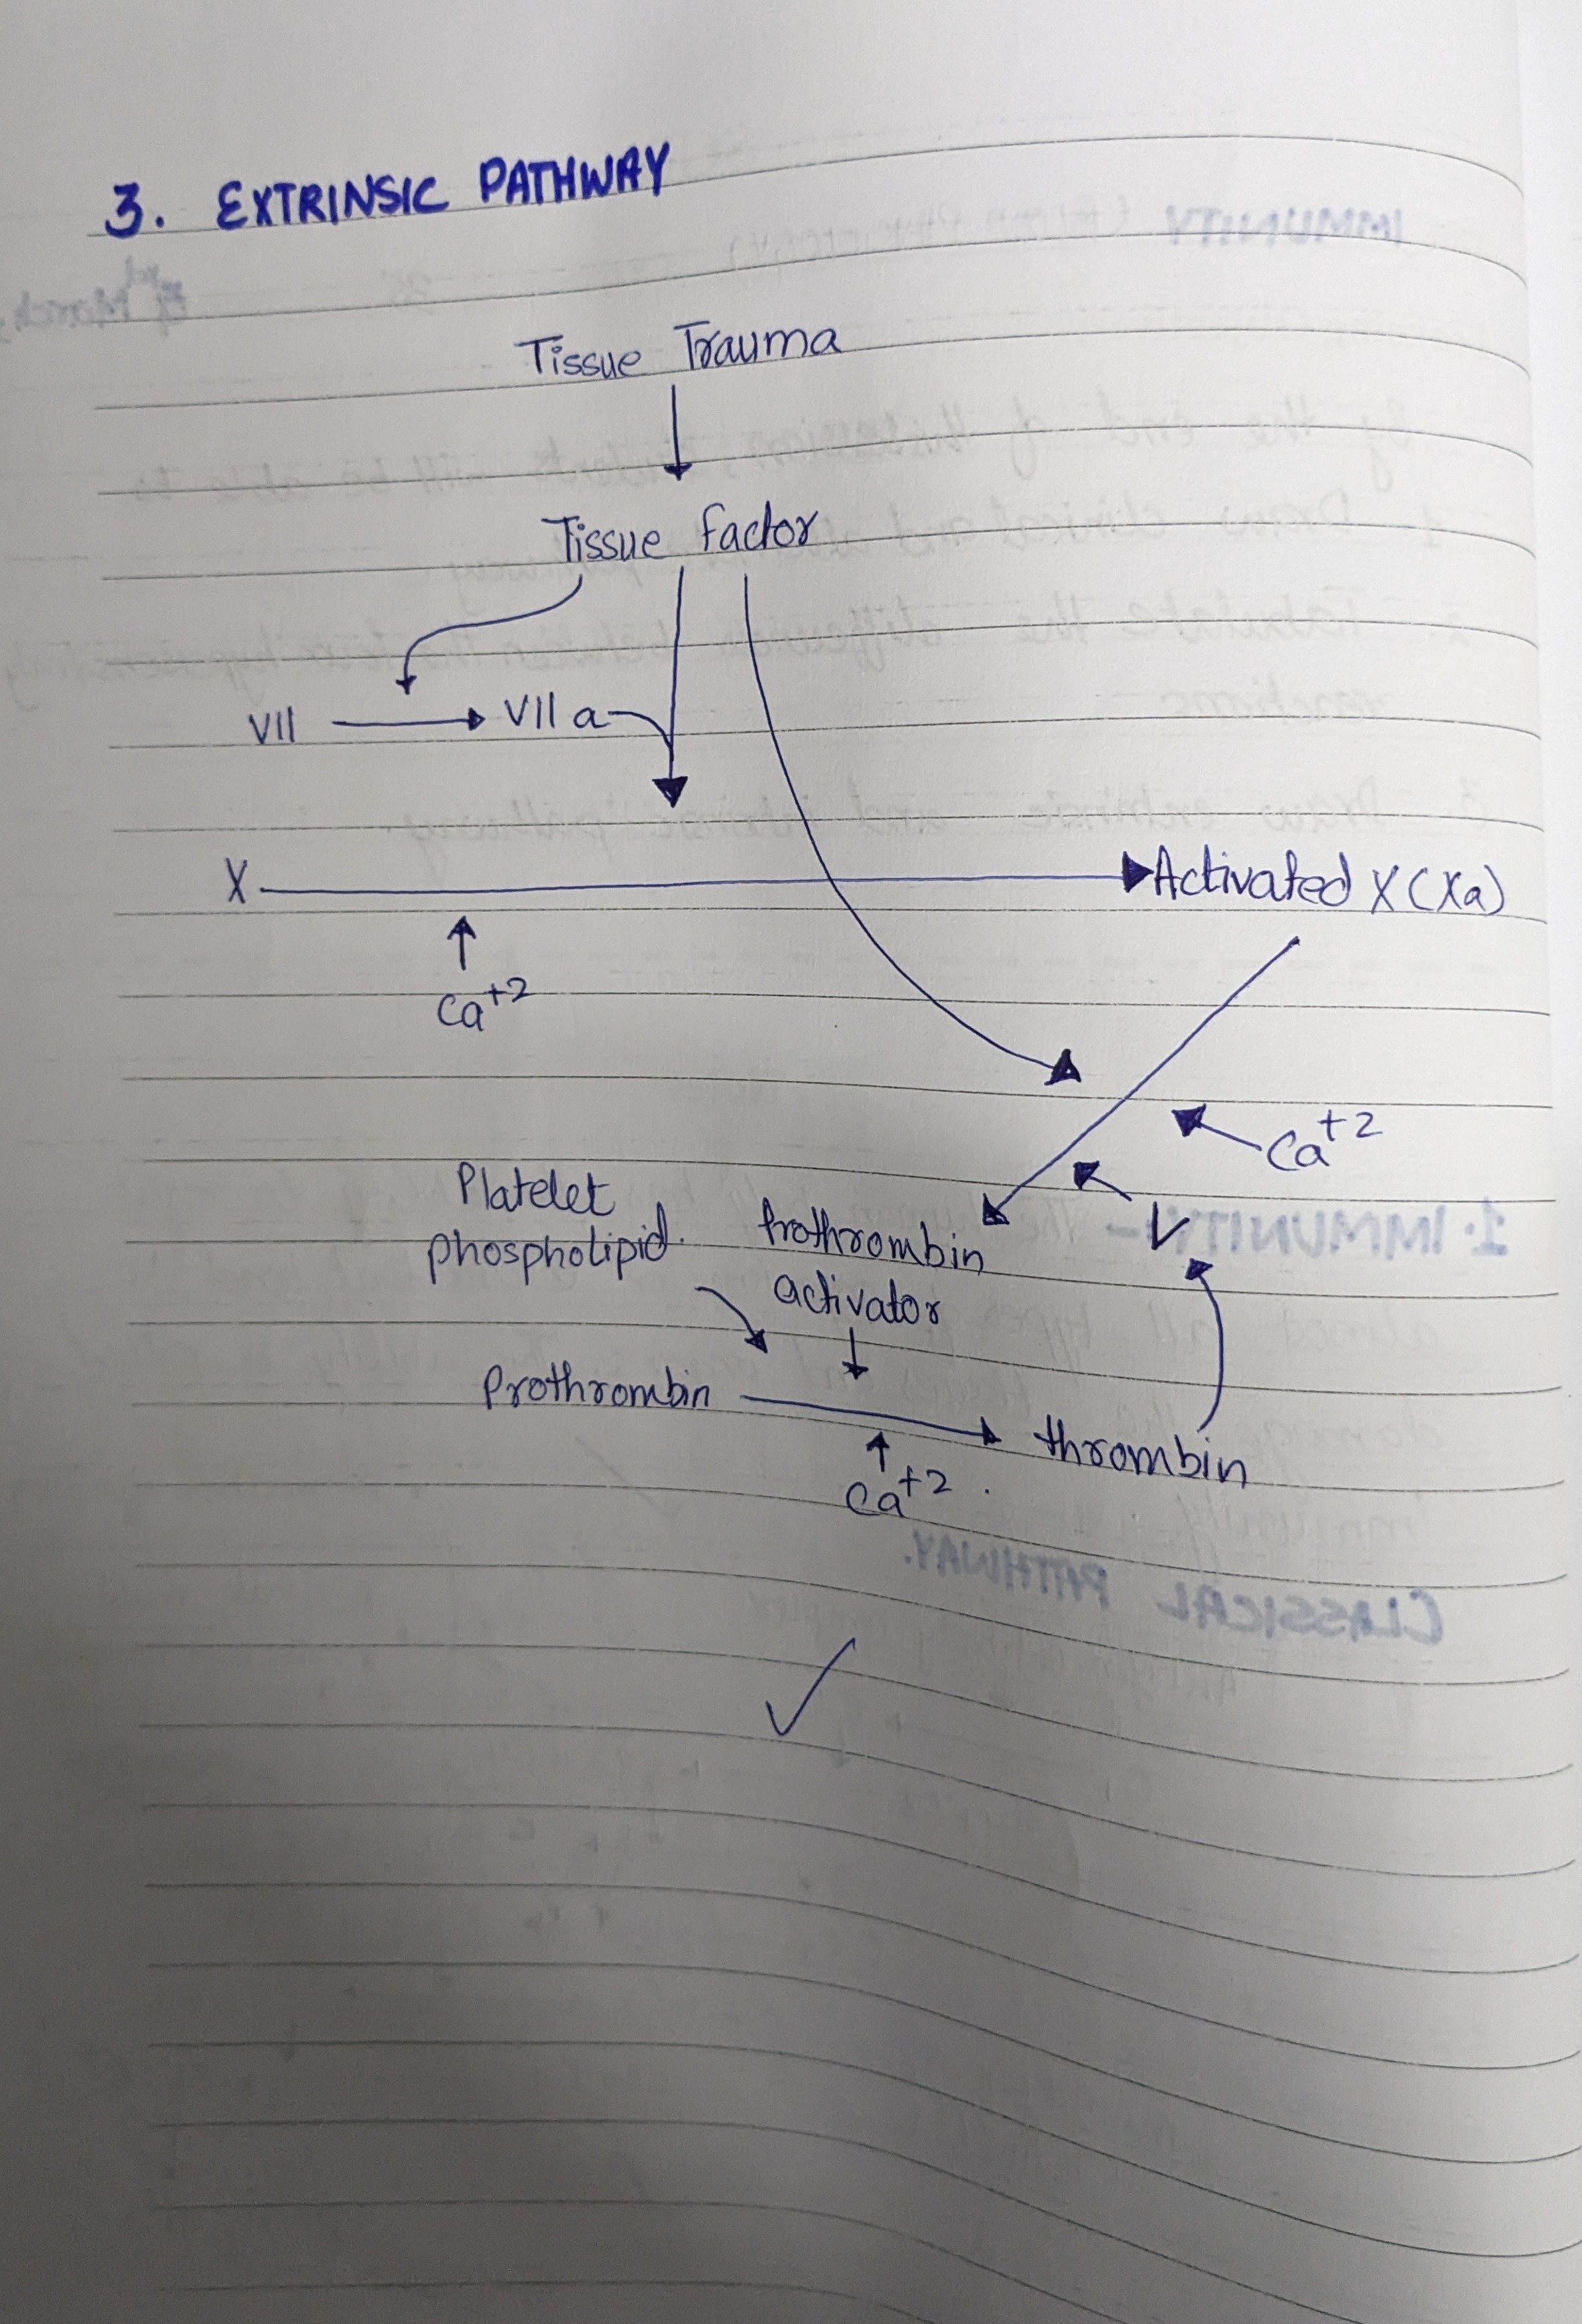 3. EXTRINSIC PATHWAY
Tissue Trauma
Tissue factor
VII
VII a
X
Activated X (Xa)
Ca+2
Ca+2
Platelet
phospholipid.
Prothrombin
activator
V
Prothrombin
thrombin
Ca+2 .